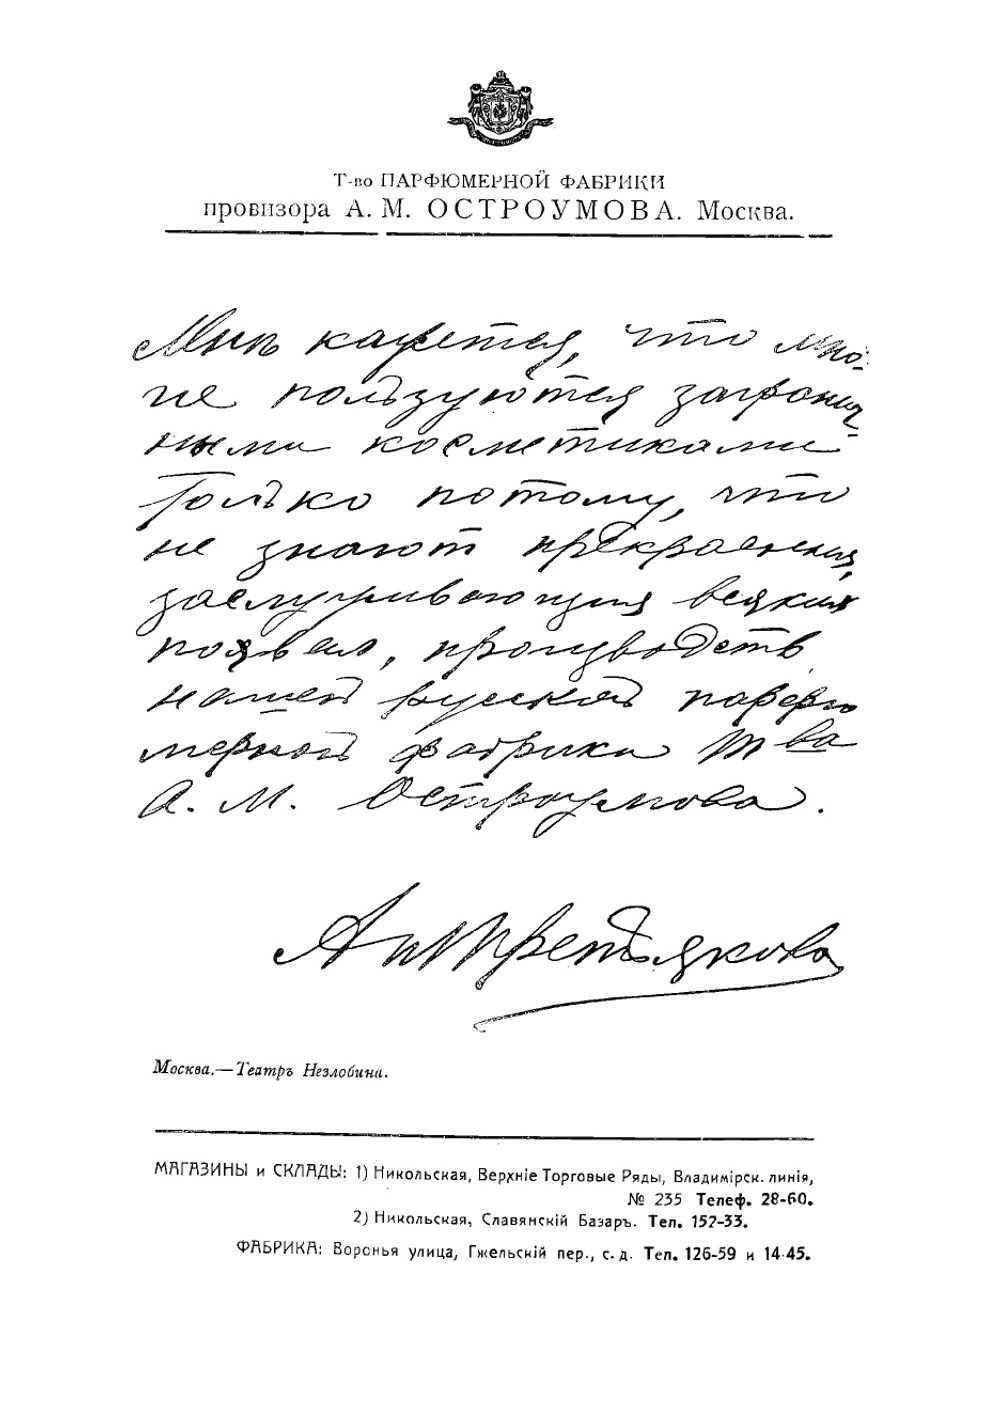 Т-во ПАРФЮМЕРНОЙ ФАБРИКИ
провизора А. М. ОСТРОУМОВА. Москва.
Мнѣ кажется, что мно-
гие пользуются загранич-
ными косметиками
только потому, что
не знают прекрасныя,
заслуживающия всяких
похвал, производств
нашей русской парфю
мерной фабрики Т ва
А. М. Остроумова.
Ан Третьякова
Москва.—Театръ Незлобина.
МАГАЗИНЫ и СКЛАДЫ: 1) Никольская, Верхніе Торговые Ряды, Владимірск. линія,
№ 235 Телеф. 28-60.
2) Никольская, Славянскій Базаръ. Тел. 152-33.
ФАБРИКА: Воронья улица, Гжельскій пер., с. д. Тел. 126-59 и 14-45.